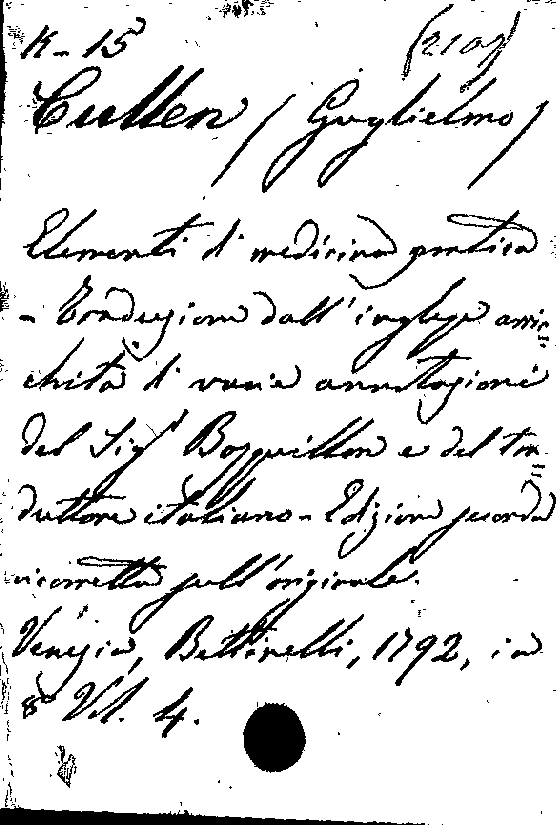 K-15 (2102)
Cullen / Guglielmo /
Elementi di medicina pratica
- Traduzione dall'inglese arric=
chita di varie annotazioni
del Sigr Bosquillon e del tra=
duttore italiano - Edizione seconda
ricorretta sull'originale.
Venezia, Bettinelli, 1792, in
8º Vol. 4.